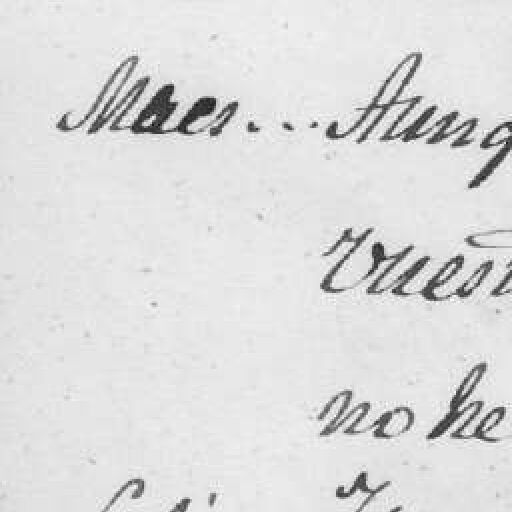 Maes... Aunq
Vuest
no he